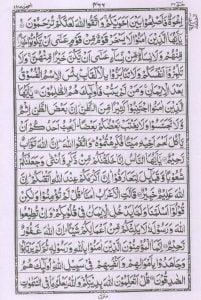 اِخْوَةٌ فَاَصْلِحُوْا بَيْنَ اَخَوَيْكُمْ وَاتَّقُوا اللّٰهَ لَعَلَّكُمْ تُرْحَمُوْنَ
يٰۤاَيُّهَا الَّذِيْنَ اٰمَنُوْا لَا يَسْخَرْ قَوْمٌ مِّنْ قَوْمٍ عَسٰۤى اَنْ يَّكُوْنُوْا خَيْرًا
مِّنْهُمْ وَلَا نِسَآءٌ مِّنْ نِّسَآءٍ عَسٰۤى اَنْ يَّكُنَّ خَيْرًا مِّنْهُنَّ وَلَا
تَلْمِزُوْۤا اَنْفُسَكُمْ وَلَا تَنَابَزُوْا بِالْاَلْقَابِ بِئْسَ الِاسْمُ الْفُسُوْقُ
بَعْدَ الْاِيْمَانِ وَمَنْ لَّمْ يَتُبْ فَاُولٰٓئِكَ هُمُ الظّٰلِمُوْنَ يٰۤاَيُّهَا الَّذِيْنَ
اٰمَنُوا اجْتَنِبُوْا كَثِيْرًا مِّنَ الظَّنِّ اِنَّ بَعْضَ الظَّنِّ اِثْمٌ
وَّلَا تَجَسَّسُوْا وَلَا يَغْتَبْ بَّعْضُكُمْ بَعْضًا اَيُحِبُّ اَحَدُكُمْ اَنْ
يَّاْكُلَ لَحْمَ اَخِيْهِ مَيْتًا فَكَرِهْتُمُوْهُ وَاتَّقُوا اللّٰهَ اِنَّ اللّٰهَ تَوَّابٌ
رَّحِيْمٌ يٰۤاَيُّهَا النَّاسُ اِنَّا خَلَقْنٰكُمْ مِّنْ ذَكَرٍ وَّاُنْثٰى وَجَعَلْنٰكُمْ
شُعُوْبًا وَّقَبَآئِلَ لِتَعَارَفُوْا اِنَّ اَكْرَمَكُمْ عِنْدَ اللّٰهِ اَتْقٰىكُمْ اِنَّ
اللّٰهَ عَلِيْمٌ خَبِيْرٌ قَالَتِ الْاَعْرَابُ اٰمَنَّا قُلْ لَّمْ تُؤْمِنُوْا وَلٰكِنْ
قُوْلُوْۤا اَسْلَمْنَا وَلَمَّا يَدْخُلِ الْاِيْمَانُ فِيْ قُلُوْبِكُمْ وَاِنْ تُطِيْعُوا
اللّٰهَ وَرَسُوْلَهٗ لَا يَلِتْكُمْ مِّنْ اَعْمَالِكُمْ شَيْئًا اِنَّ اللّٰهَ غَفُوْرٌ
رَّحِيْمٌ اِنَّمَا الْمُؤْمِنُوْنَ الَّذِيْنَ اٰمَنُوْا بِاللّٰهِ وَرَسُوْلِهٖ ثُمَّ لَمْ يَرْتَابُوْا
وَجَاهَدُوْا بِاَمْوَالِهِمْ وَاَنْفُسِهِمْ فِيْ سَبِيْلِ اللّٰهِ اُولٰٓئِكَ هُمُ
الصّٰدِقُوْنَ قُلْ اَتُعَلِّمُوْنَ اللّٰهَ بِدِيْنِكُمْ وَاللّٰهُ يَعْلَمُ مَا فِى السَّمٰوٰتِ